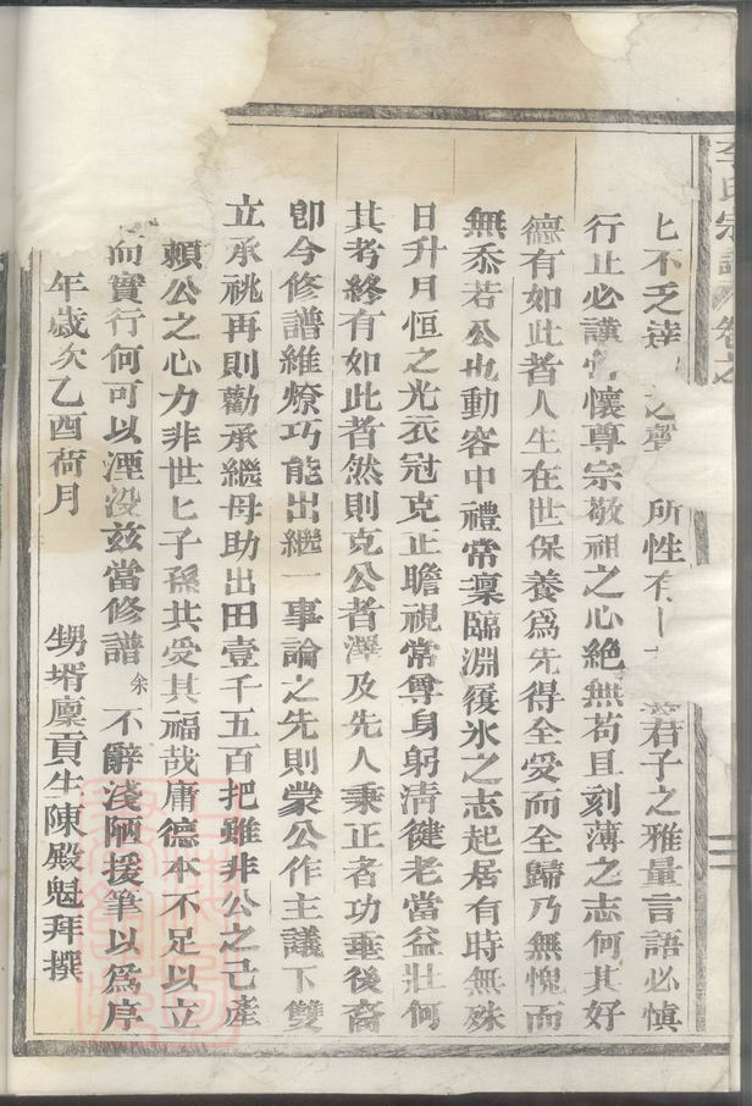 李氏宗譜卷之
不乏達之聲所性有君子之雅量言語必慎
行止必謹常懷尊宗敬祖之心絶無苟且刻薄之志何其好
德有如此者人生在世保養爲先得全受而全歸乃無愧而
無忝若公也動容中禮常凜臨淵履氷之志起居有時無殊
日升月恒之光衣冠克正瞻視常尊身躬清健老當益壯何
其考終有如此者然則克公者澤及先人秉正者功垂後裔
卽今修譜維燎巧能出繼一事論之先則蒙公作主議下雙
立承祧再則勸承繼母助出田壹千五百把雖非公之己產
賴公之心力非世匕子孫共受其福哉庸德本不足以立
而實行何可以湮没兹當修譜余不辭淺陋援筆以爲序
年歲次乙酉荷月 甥壻廩貢生陳殿魁拜撰